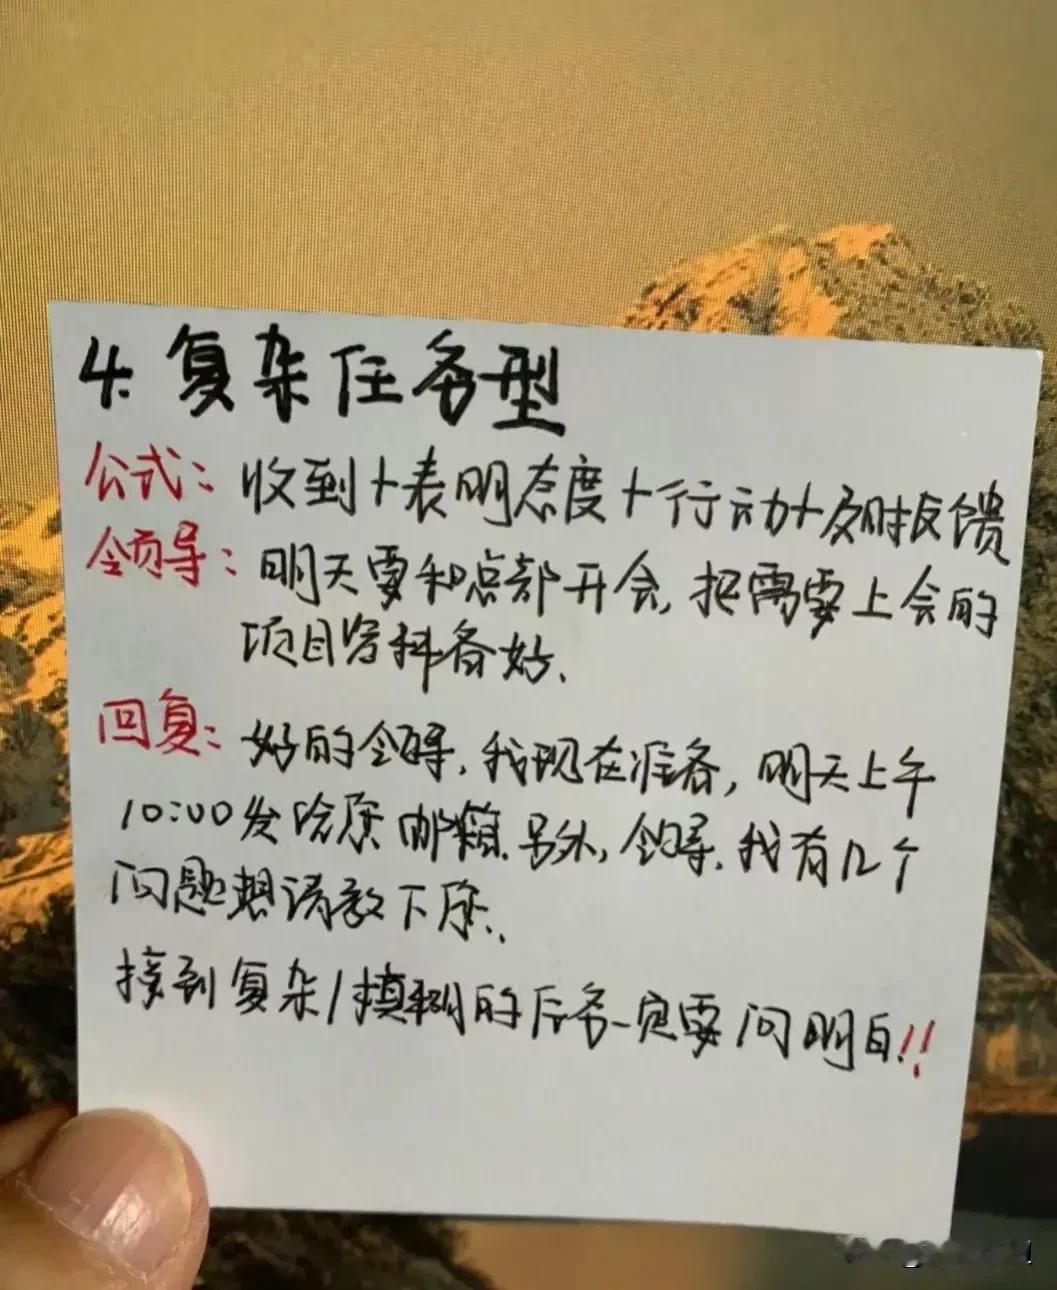 4. 复杂任务型
公式：收到+表明态度+行动+及时反馈
领导：明天要和总部开会，把需要上会的
项目资料备好、
回复：好的领导，我现在准备，明天上午
10:00发给您邮箱.另外，领导，我有几个
问题想请教下您、
接到复杂/模糊的任务一定要问明白!!